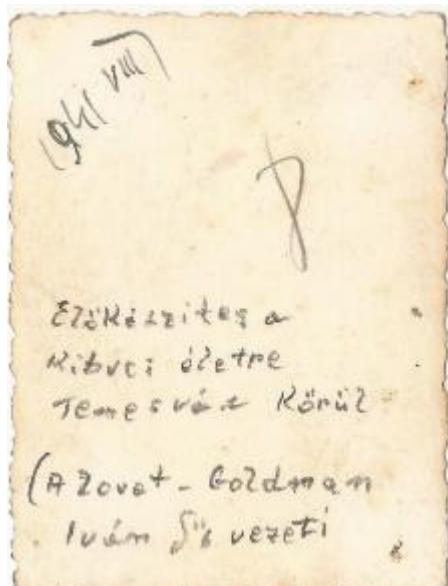 1941 VIII
Előkészítes a
Kibuci életre
Temesvár Körül
(A lovat - Goldman
Iván vezeti